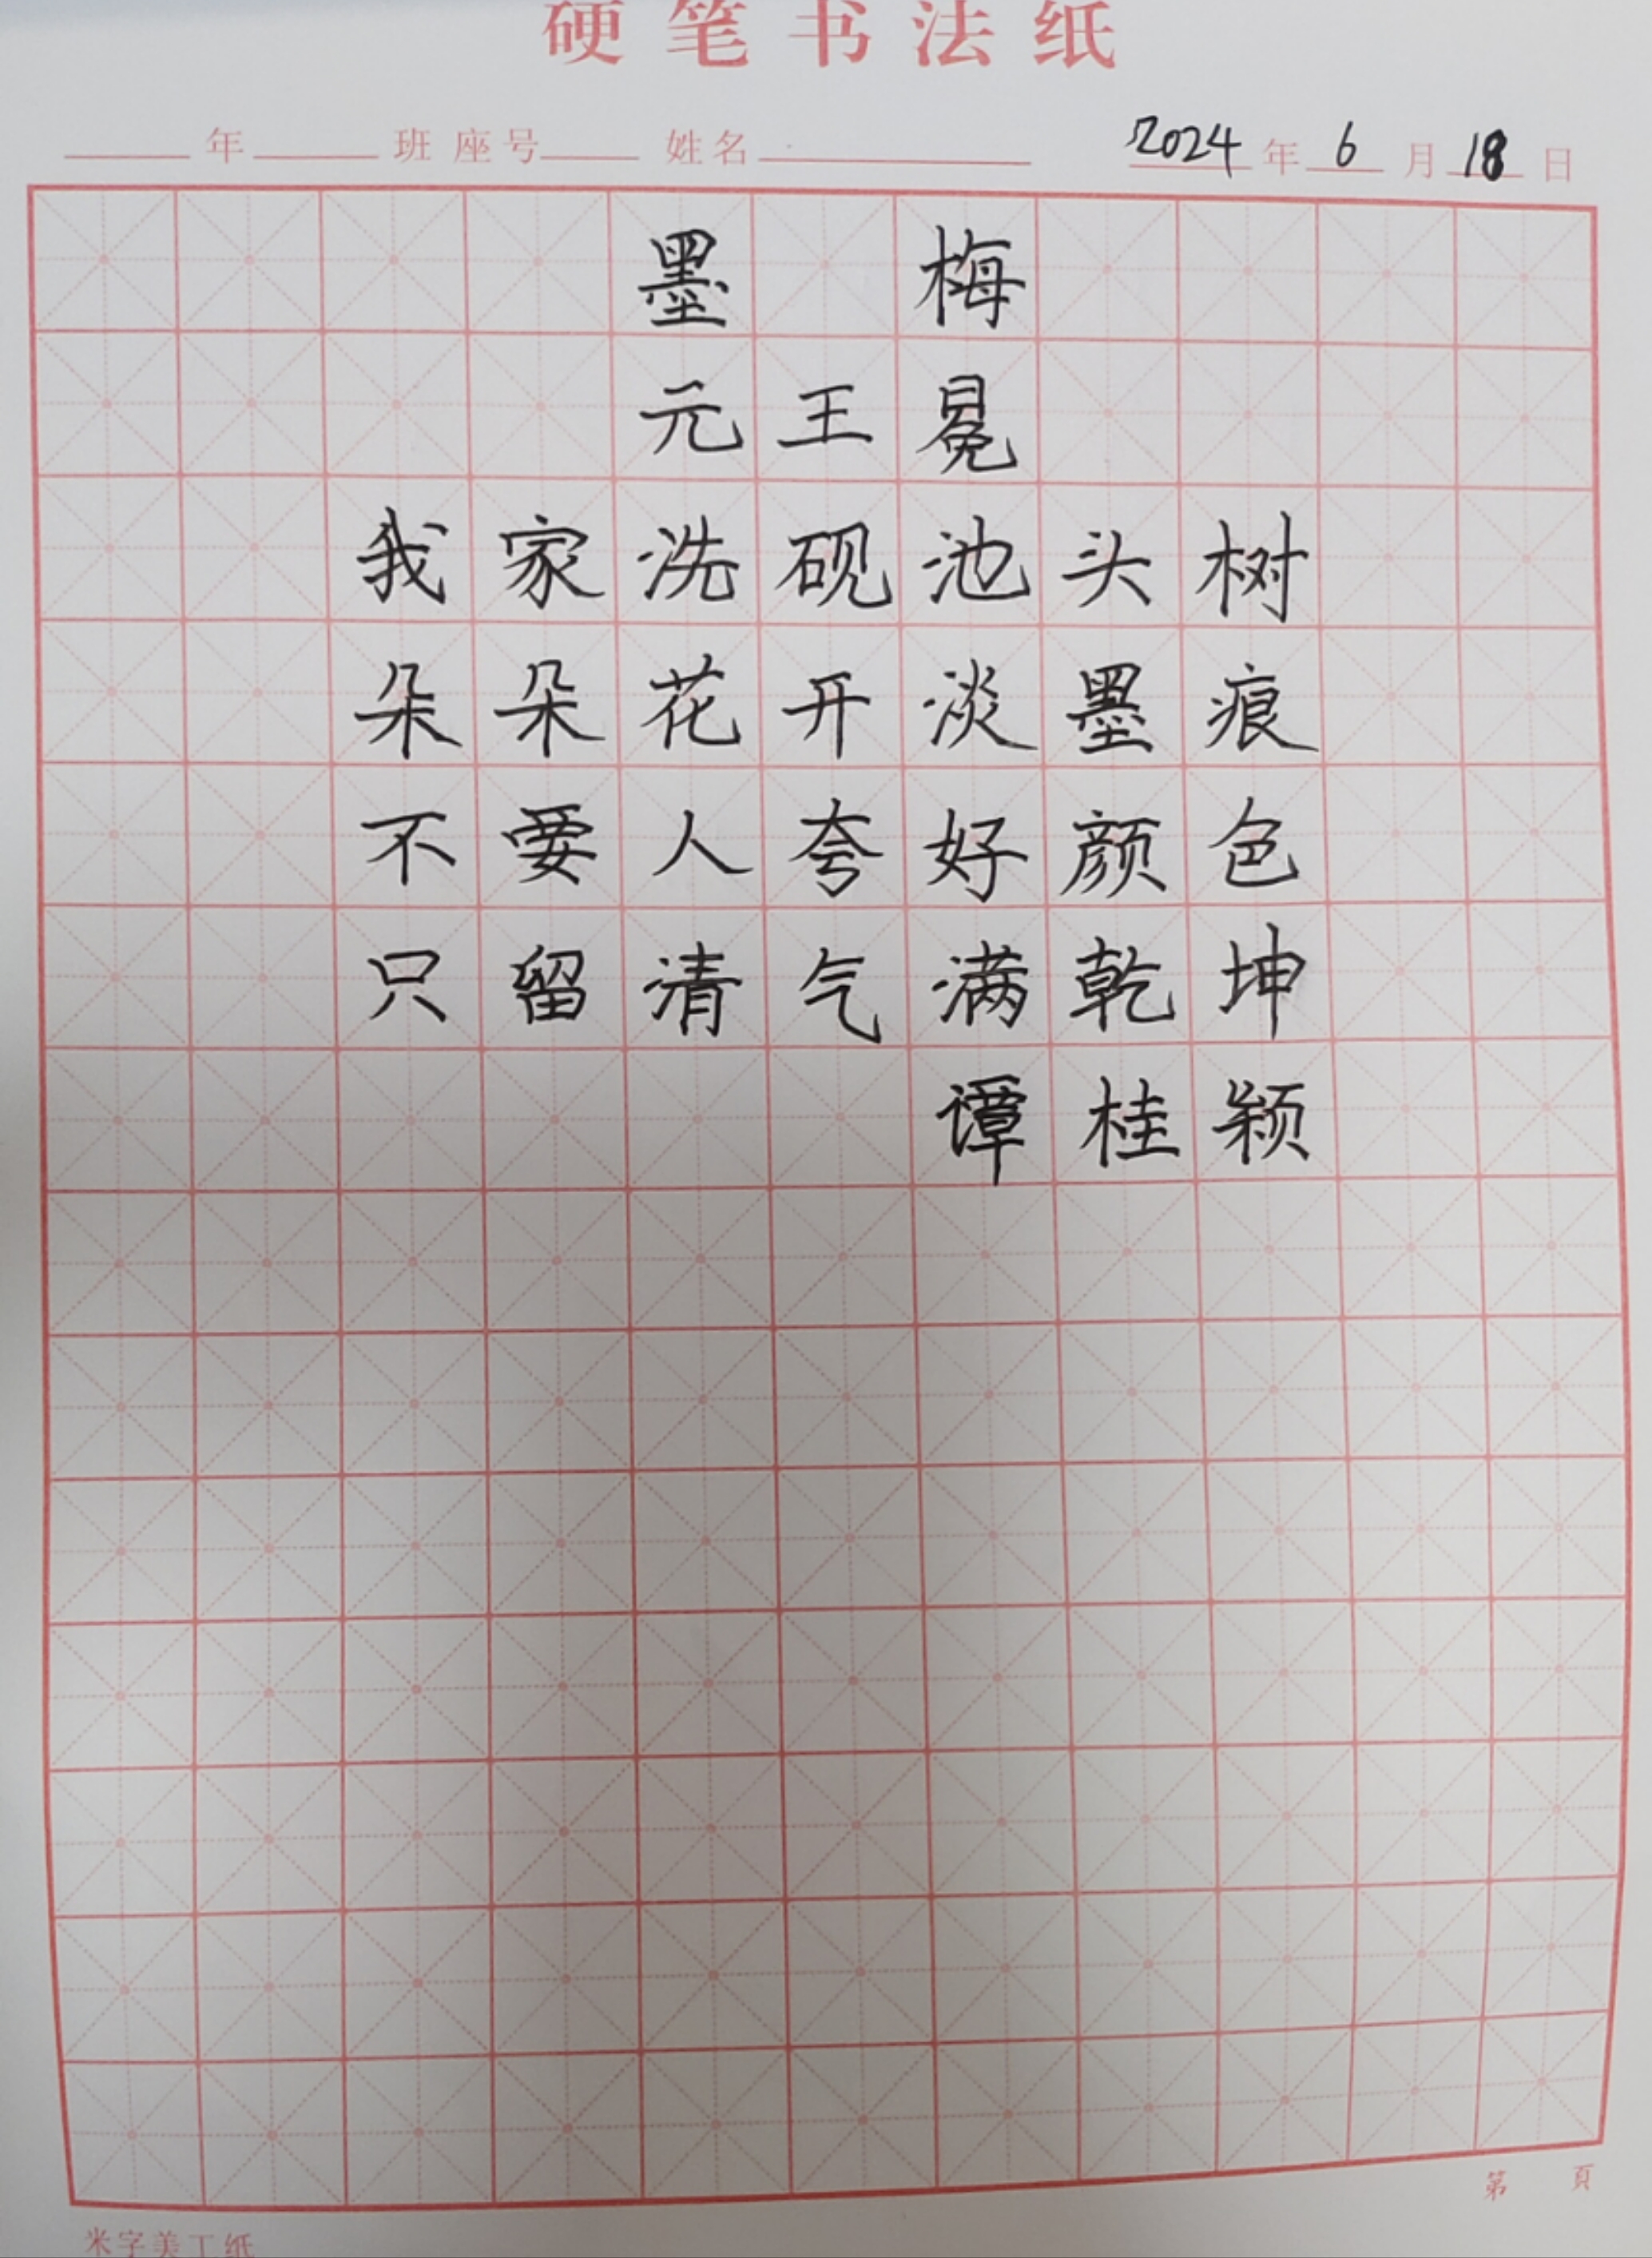 硬笔书法纸
年 班 座号 姓名 2024年6月18日
墨梅
元王冕
我家洗砚池头树
朵朵花开淡墨痕
不要人夸好颜色
只留清气满乾坤
谭桂颖
第 頁
米字美工纸